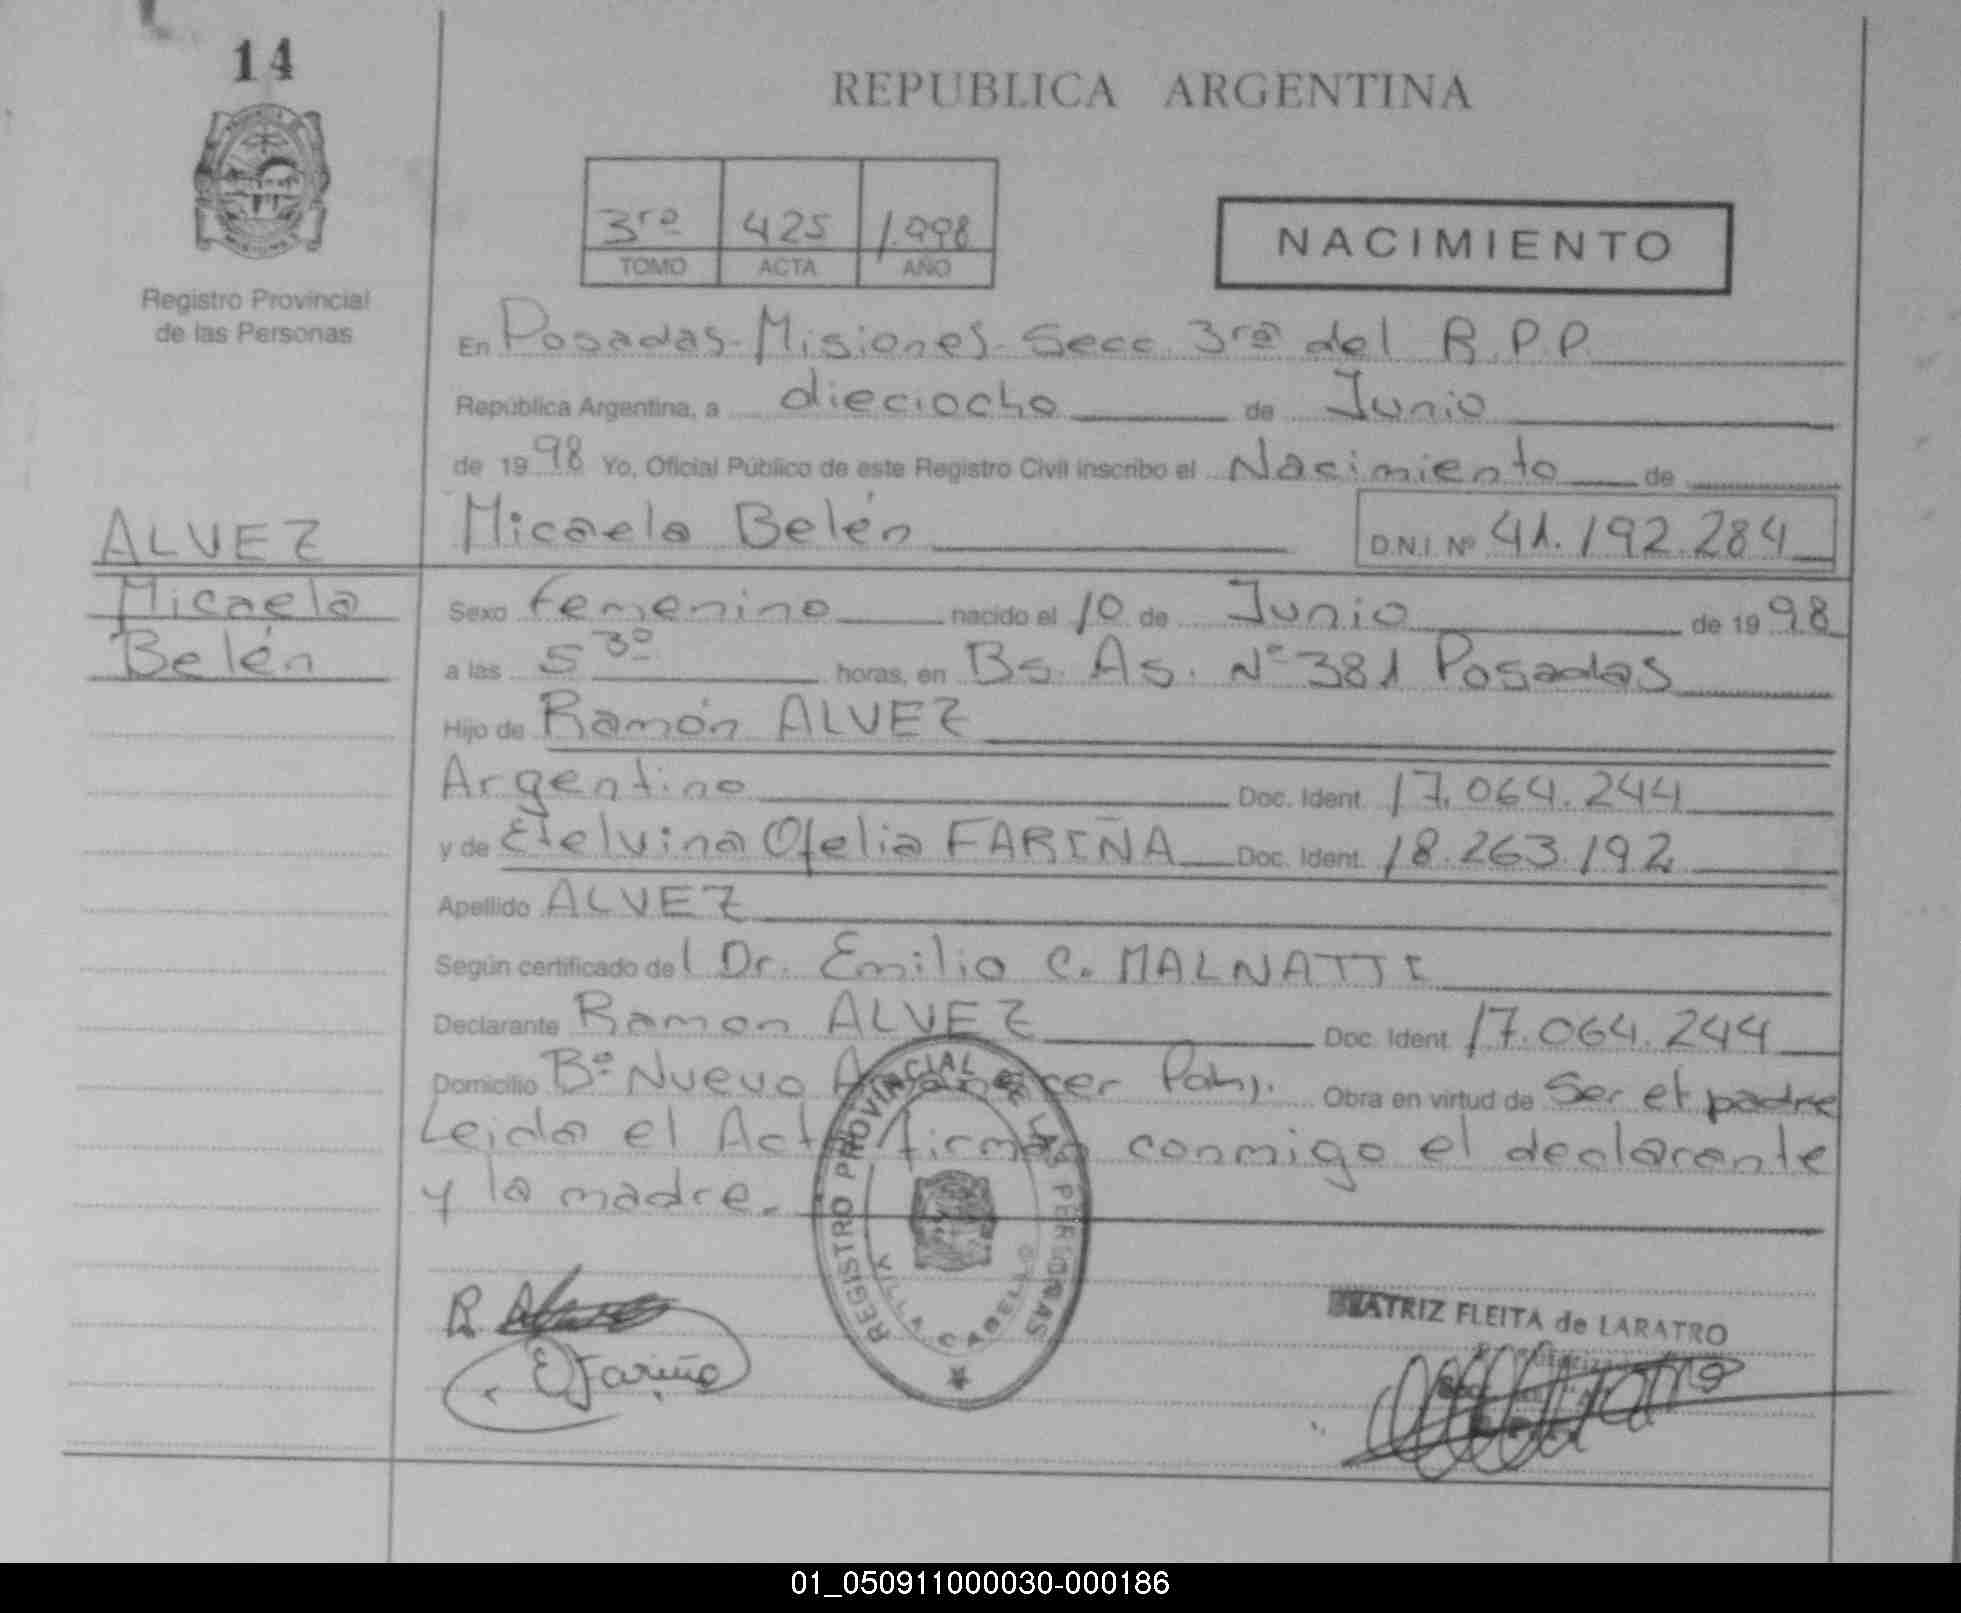 14
REPUBLICA ARGENTINA
3ra 425 1.998
TOMO ACTA AÑO
NACIMIENTO
Registro Provincial
de las Personas
En Posadas-Misiones-Secc. 3ra del R.P.P.
República Argentina, a dieciocho de Junio
de 1998 Yo, Oficial Público de este Registro Civil inscribo el Nacimiento de
Micaela Belén D.N.I. Nº 41.192.284
ALVEZ
Micaela
Belén
Sexo femenino nacido el 10 de Junio de 1998
a las 5 30 horas, en Bs. As. Nº 381 Posadas
Hijo de Ramón ALVEZ
Argentino Doc. Ident. 17.064.244
y de Etelvina Ofelia FARIÑA Doc. Ident. 18.263.192
Apellido ALVEZ
Según certificado del Dr. Emilio C. MALNATTI
Declarante Ramon ALVEZ Doc. Ident. 17.064.244
Domicilio Bº Nuevo Amanecer Obra en virtud de Ser el padre
Leida el Acta firman conmigo el declarante
y la madre.
REGISTRO PROVINCIAL DE LAS PERSONAS
VILLA CABELLO
R. Alvez
E Fariña
BEATRIZ FLEITA de LARATRO
01_050911000030-000186